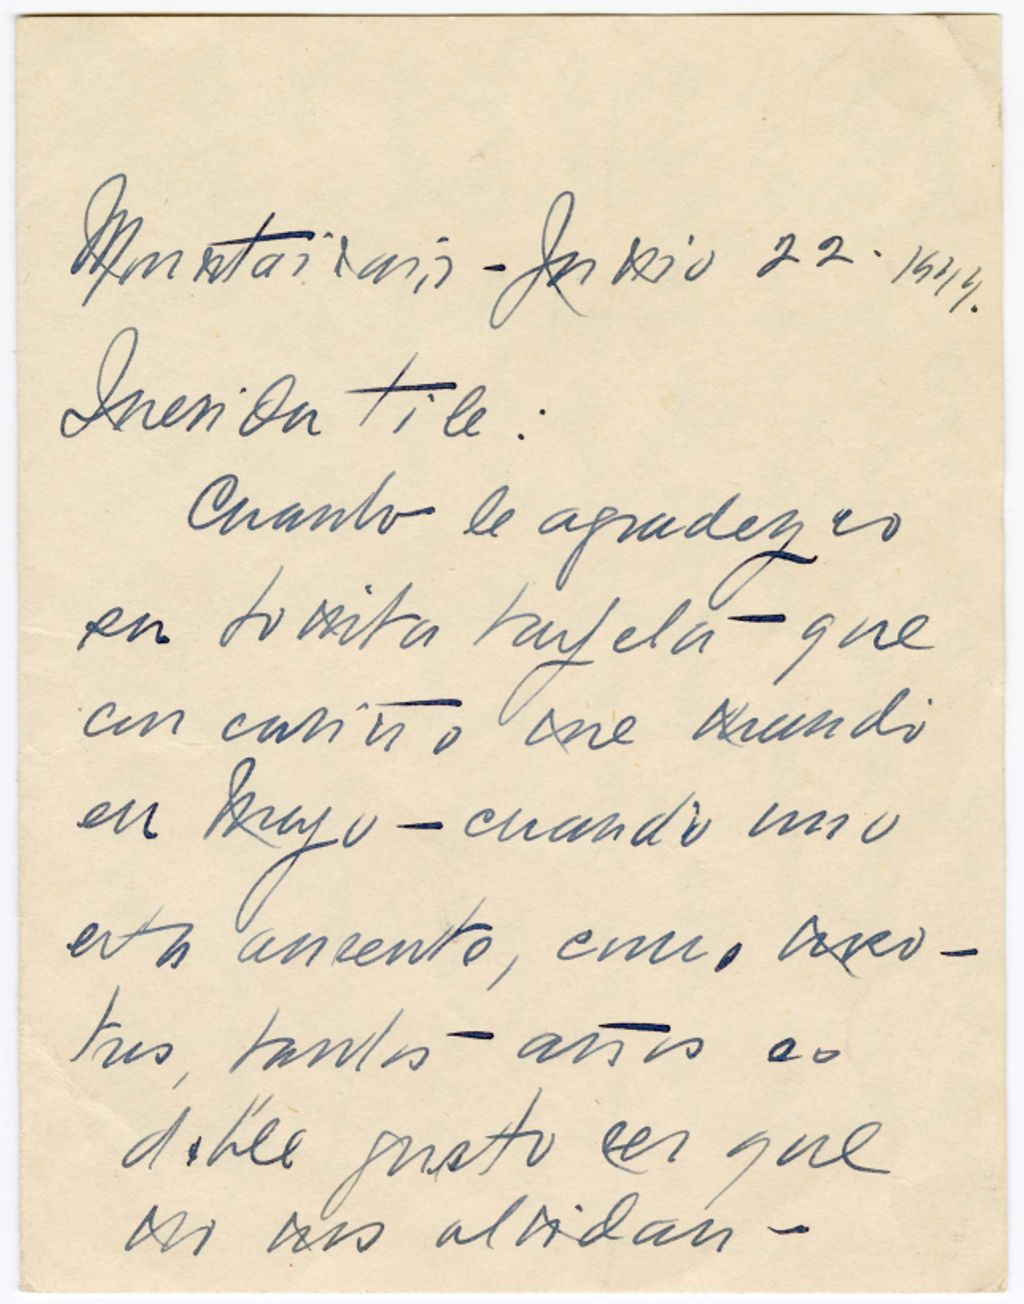 Junio 22. 1944.
Querida Tile:
Cuanto le agradezco
su bonita tarjeta - que
con cariño me mando
en Mayo - cuando uno
esta ausente, como noso-
tros, tantos - años es
doble gusto ver que
no nos olvidan -